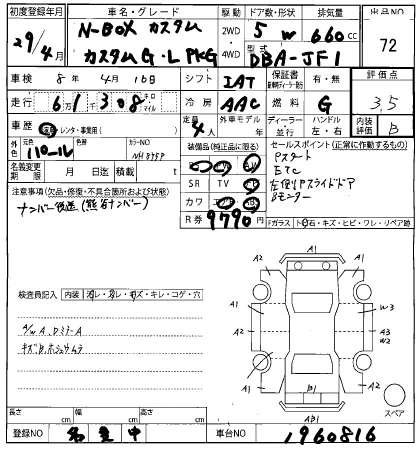 初度登録年月 車名・グレード 駆動 ドア数・形状 排気量 出品NO
29/4月 N-BOX カスタム 2WD 4WD 5 W 660cc 72
カスタム G・L PKG 型式 DBA-JF1
車検 8年 4月 16日 シフト IAT 保証書 有・無 評価点
走行 6万1千308キロ マイル 冷房 AAC 燃料 G 3.5
車歴 自 レンタ・事業用( ) 定員 4人 外車モデル 年 ディーラー 並行 ハンドル 左・右 内装評価 B
外色 元色 パール 色替 カラーNO NH875P
装備品(純正品に限る) セールスポイント(正常に作動するもの)
名義変更期限 月 日迄 積載 t
SR TV
カワ
R券 9790円
Pスタート
ETC
左側Pスライドドア
Bモニター
注意事項(欠品・修復・不具合箇所および状態)
ナンバー後送(熊谷ナンバー)
Fガラス トビ石・キズ・ヒビ・ワレ・リペア跡
検査員記入 内装 ヨゴレ・スレ・キズ・キレ・コゲ・穴
A/W A、DミラーA
キズB ホシュウムラ
A1
A2 A2
A1 W3
A3
W2
A1
A2 A2
B1
AB1
スペア
長さ cm 幅 cm 高さ cm
登録NO 名変中 車台NO 1960816